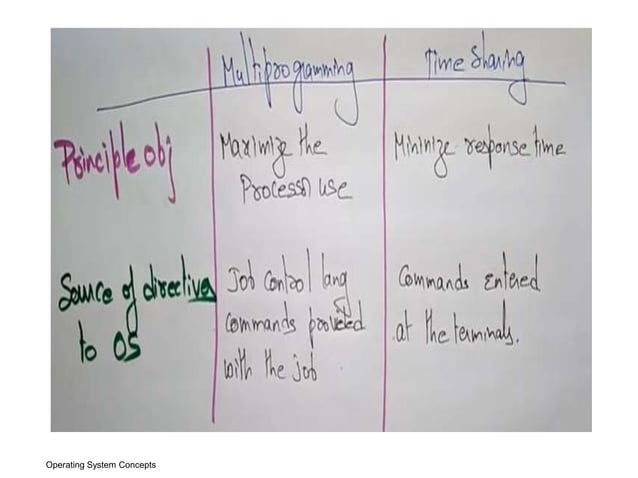 Multiprogramming Time Sharing
Principle obj Maximize the Minimize response time
Processor use
Source of directives Job Control lang Commands Entered
to OS commands provided at the terminals.
with the job
Operating System Concepts